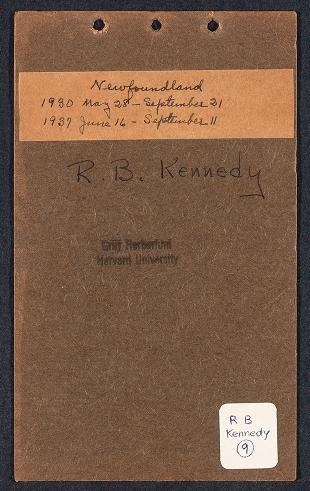 Newfoundland
1930 May 28 - September 21
1937 June 16 - September 11
R. B. Kennedy
Gray Herbarium
Harvard University
R B
Kennedy
9